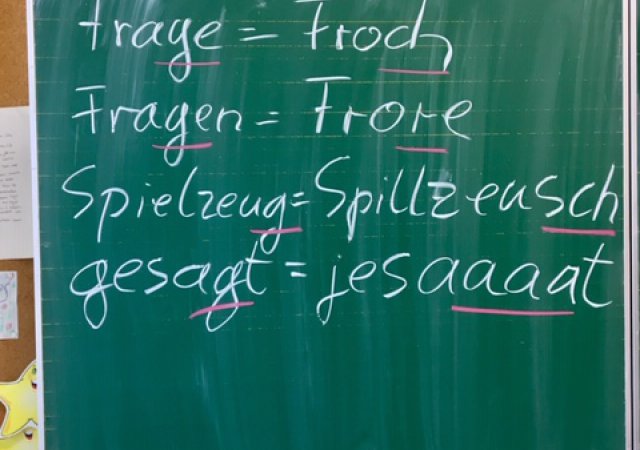 Frage = Froch
Fragen = Frore
Spielzeug = Spillzeusch
gesagt = jesaaaat